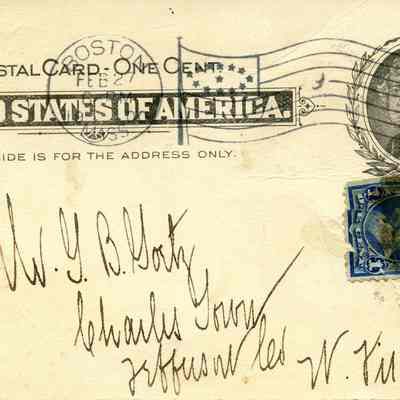 BOSTON
FEB 27
MASS
STAL CARD - ONE CENT.
D STATES OF AMERICA.
IDE IS FOR THE ADDRESS ONLY.
Mr. G. B. Goetz
Charles Town
Jefferson Co
W. Vir